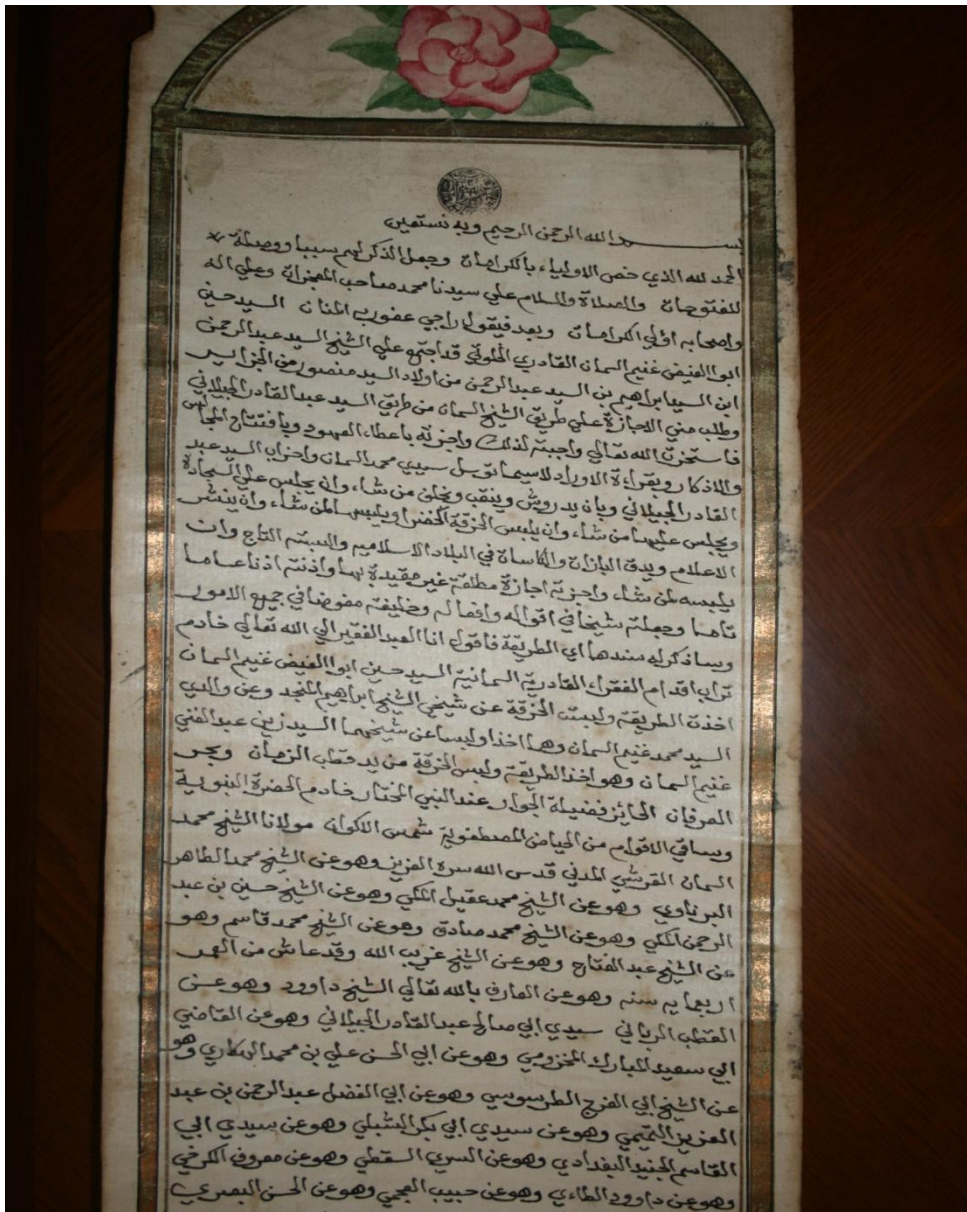 بسم الله الرحمن الرحيم وبه نستعين
الحمد لله الذي خص الاولياء بالكرامات وجعل الذكر لهم سببا ووصلة
للفتوحات والصلاة والسلام علي سيدنا محمد صاحب المعجزات وعلي اله
واصحابه اولي الكرامات وبعد فيقول راجي عفو ربه المنان السيد حسين
ابوا الفيض غنيم السمان القادري الخلوتي قد اجتمع علي الشيخ السيد عبد الرحمن
ابن السيد ابراهيم بن السيد عبد الرحمن من اولاد السيد منصور من الجزاير
وطلب مني الاجازة علي طريق الشيخ السمان من طريق السيد عبد القادر الجيلاني
فاستخرت الله تعالي واجبته لذلك واجزته باعطاء العهود وبافتتاح المجالس
والاذكار وبقراءة الاوراد لاسيما توسل سيدي محمد السمان واحزاب السيد عبد
القادر الجيلاني وبان يدروش وينقب ويخلف من شاء وان يجلس علي السجادة
ويجلس عليها من شاء وان يلبس الخرقة الخضرا ويلبسها لمن شاء وان ينشر
الاعلام ويدق البازات والكاسات في البلاد الاسلاميه والبسته التاج وان
يلبسه لمن شاء واجزته اجازة مطلقة غير مقيدة بها واذنته اذنا عاما
تاما وجعلته شيخا في اقواله وافعاله وخليفته مفوضا في جميع الامور
وساذكر له سندها اي الطريقة فاقول انا العبد الفقير الي الله تعالي خادم
تراب اقدام الفقراء القادرية السمانية السيد حسين ابوا الفيض غنيم السمان
اخذت الطريقة ولبست الخرقة عن شيخي الشيخ ابراهيم المنجد وعن والدي
السيد محمد غنيم السمان وهما اخذا ولبسا عن شيخهما السيد زيني عبد الغني
غنيم السمان وهو اخذ الطريقة ولبس الخرقة من يد قطب الزمان وبحر
العرفان الحائز فضيلة الجوار عند النبي المختار خادم الحضرة النبوية
وساقي الاقوام من الحياض المصطفوية شمس الاكوان مولانا الشيخ محمد
السمان القرشي المدني قدس الله سره العزيز وهو عن الشيخ محمد الطاهر
وهو عن الشيخ محمد عقيل المكي وهو عن الشيخ حسين بن عبد
الرحمن المكي وهو عن الشيخ محمد صادق وهو عن الشيخ محمد قاسم وهو
عن الشيخ عبد الفتاح وهو عن الشيخ غريب الله وقد عاش من العمر
اربعمايه سنه وهو عن العارف بالله تعالي الشيخ داوود وهو عن
القطب الرباني سيدي ابي صالح عبد القادر الجيلاني وهو عن القاضي
ابي سعيد المبارك المخزومي وهو عن ابي الحسن علي بن محمد الهكاري وهو
عن الشيخ ابي الفرج الطرسوسي وهو عن ابي الفضل عبد الرحمن بن عبد
العزيز التميمي وهو عن سيدي ابي بكر الشبلي وهو عن سيدي ابي
القاسم الجنيد البغدادي وهو عن السري السقطي وهو عن معروف الكرخي
وهو عن داوود الطاءي وهو عن حبيب العجمي وهو عن الحسن البصري